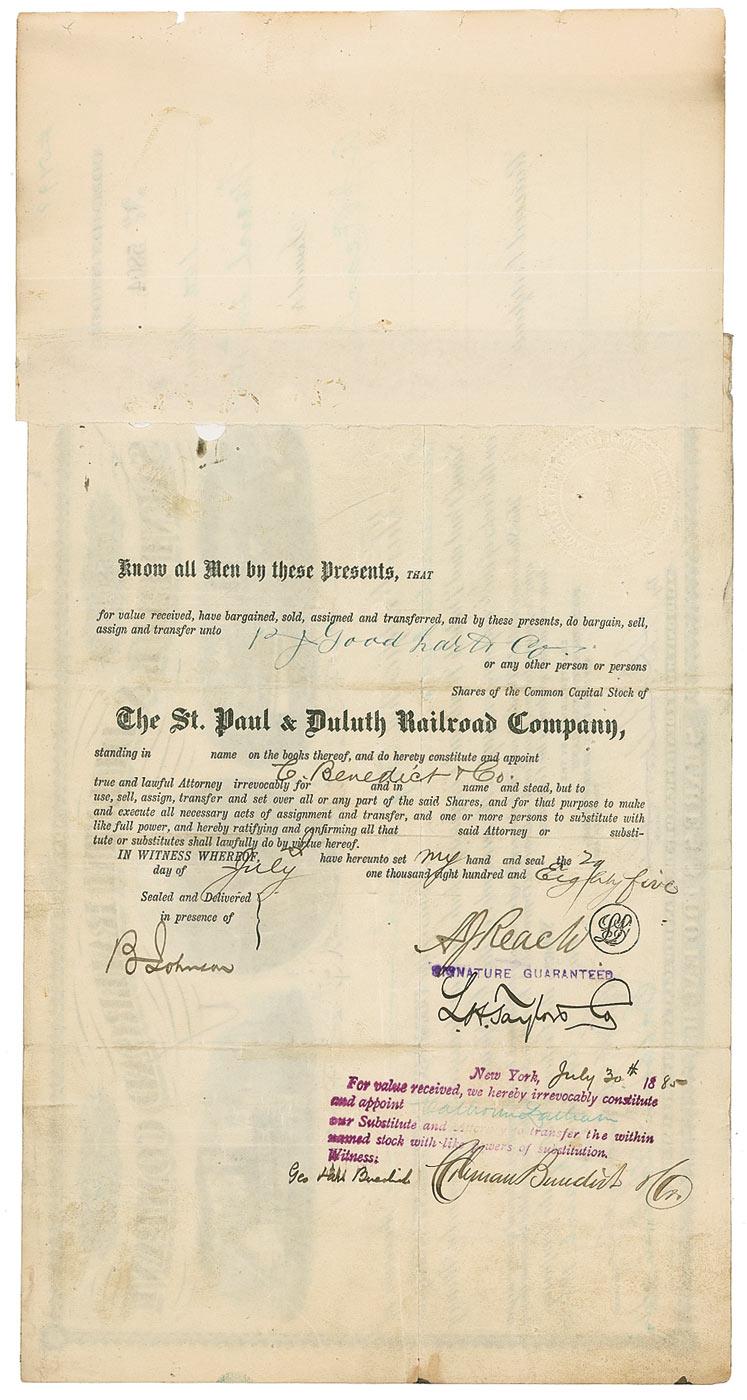 Know all Men by these Presents, THAT
for value received, have bargained, sold, assigned and transferred, and by these presents, do bargain, sell,
assign and transfer unto P J Goodhart & Co.
or any other person or persons
Shares of the Common Capital Stock of
The St. Paul & Duluth Railroad Company,
standing in name on the books thereof, and do hereby constitute and appoint
C. Benedict & Co.
true and lawful Attorney irrevocably for and in name and stead, but to
use, sell, assign, transfer and set over all or any part of the said Shares, and for that purpose to make
and execute all necessary acts of assignment and transfer, and one or more persons to substitute with
like full power, and hereby ratifying and confirming all that said Attorney or substi-
tute or substitutes shall lawfully do by virtue hereof.
IN WITNESS WHEREOF, have hereunto set my hand and seal the 29
day of July one thousand eight hundred and Eighty five
Sealed and Delivered
in presence of
B Johnson
A J Reach LS
SIGNATURE GUARANTEED
L. H. Taylor & Co
New York, July 30th 1885
For value received, we hereby irrevocably constitute
and appoint
our Substitute and to transfer the within
named stock with like powers of substitution.
Witness:
Geo Hart Benedict Coleman Benedict & Co.